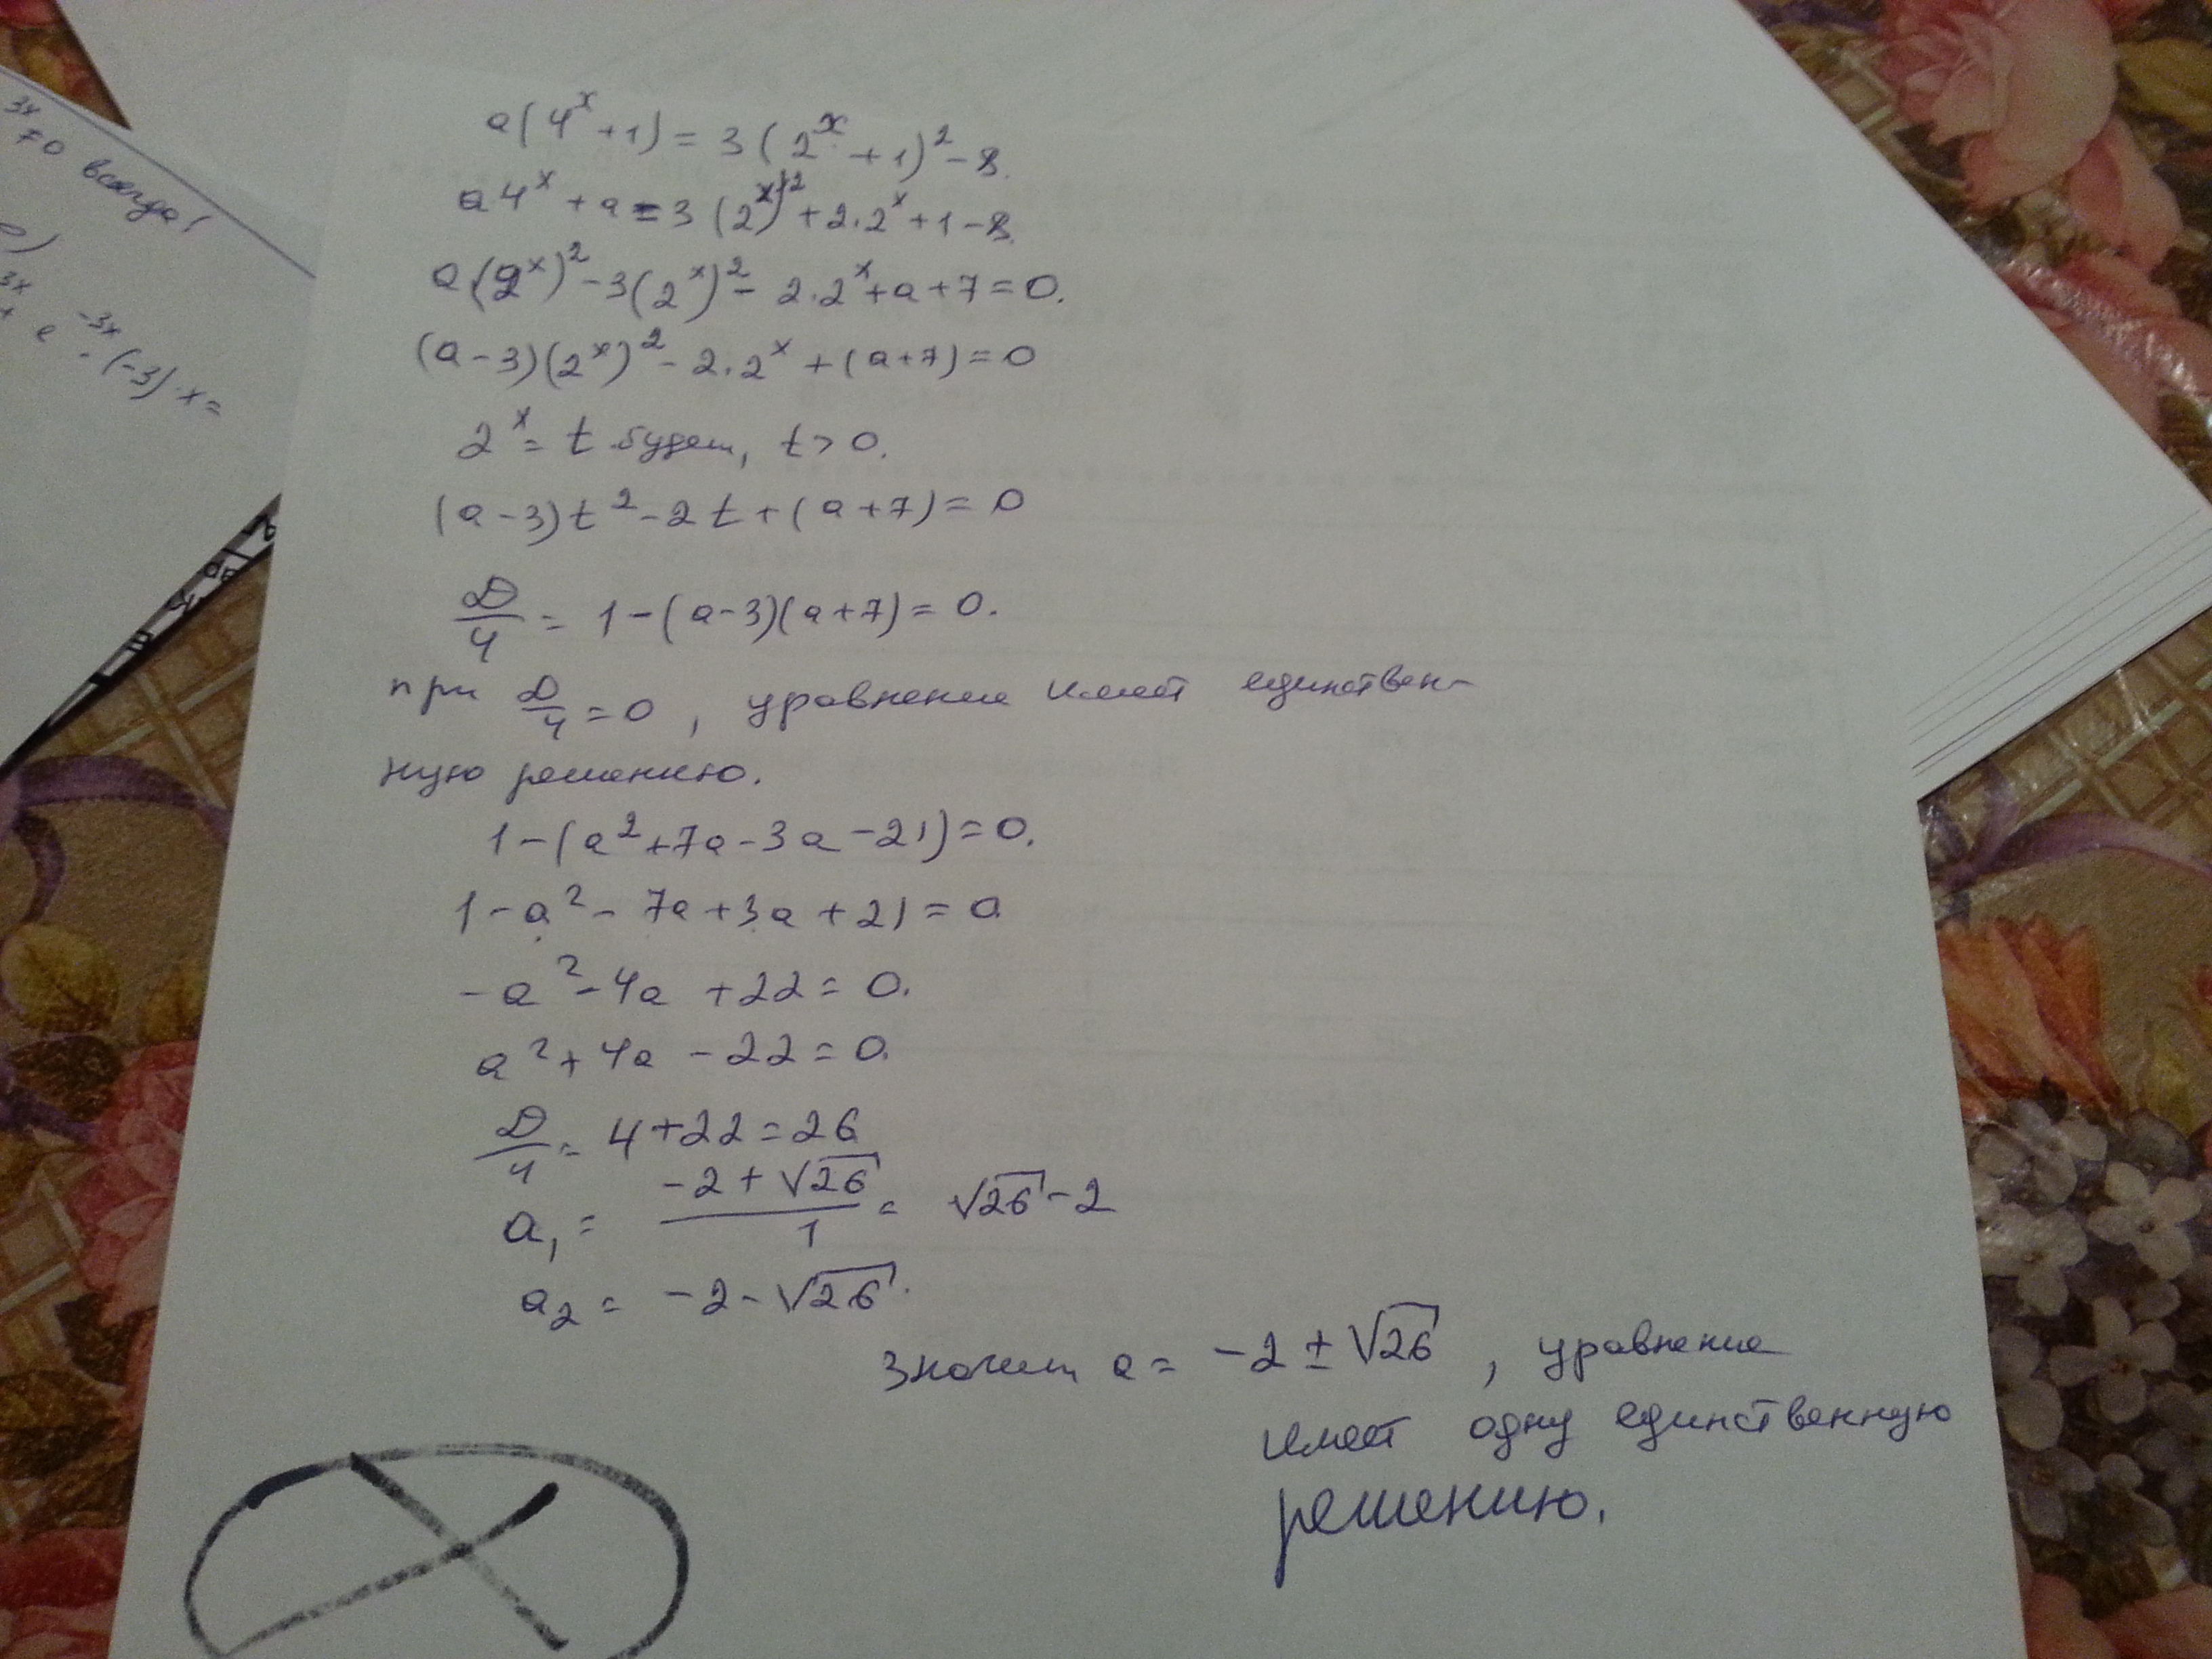 3x
70 всегда!
-3x
e · (-3) · x =
a(4^x + 1) = 3(2^x + 1)^2 - 8.
a4^x + a = 3(2^x)^2 + 2·2^x + 1 - 8.
a(2^x)^2 - 3(2^x)^2 - 2·2^x + a + 7 = 0.
(a - 3)(2^x)^2 - 2·2^x + (a + 7) = 0
2^x = t будет, t > 0.
(a - 3)t^2 - 2t + (a + 7) = 0
D/4 = 1 - (a - 3)(a + 7) = 0.
при D/4 = 0, уравнение имеет единствен-
ную решению.
1 - (a^2 + 7a - 3a - 21) = 0.
1 - a^2 - 7a + 3a + 21 = 0
-a^2 - 4a + 22 = 0.
a^2 + 4a - 22 = 0.
D/4 = 4 + 22 = 26
a1 = (-2 + √26)/1 = √26 - 2
a2 = -2 - √26.
Значит a = -2 ± √26, уравнение
имеет одну единственную
решению.